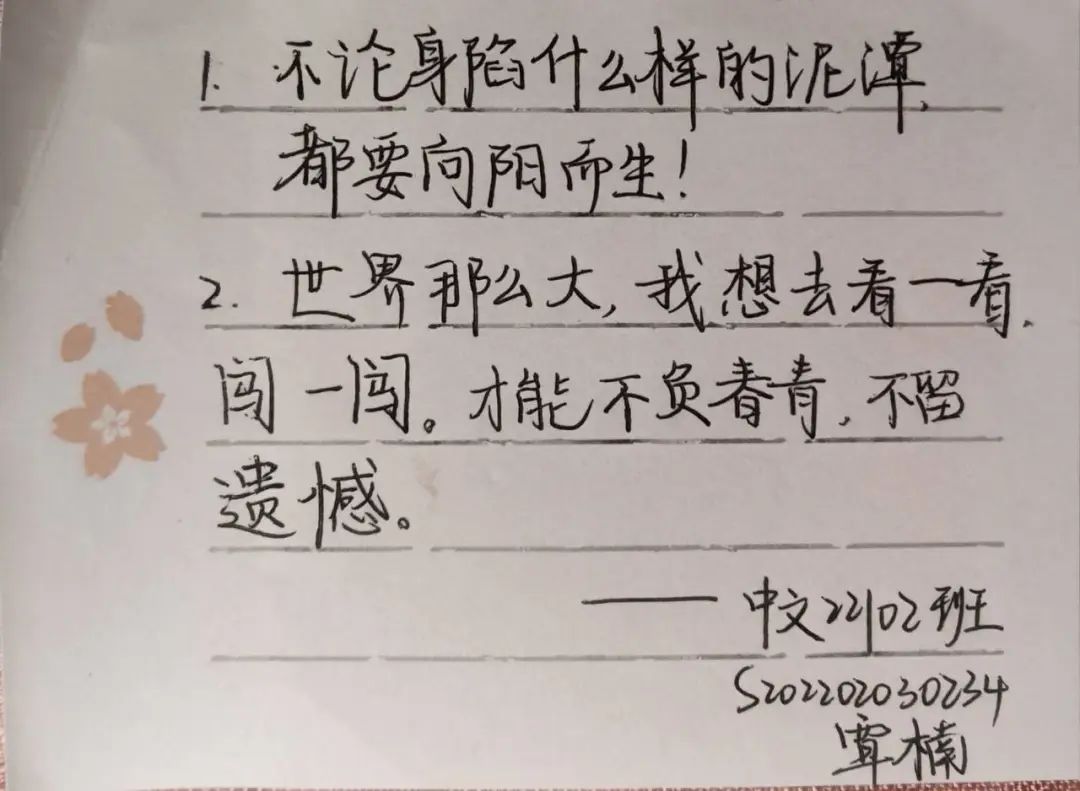 1. 不论身陷什么样的泥潭,
都要向阳而生!
2. 世界那么大, 我想去看一看,
闯一闯。才能不负春青, 不留
遗憾。
——中文2202班
S202202030234
覃楠